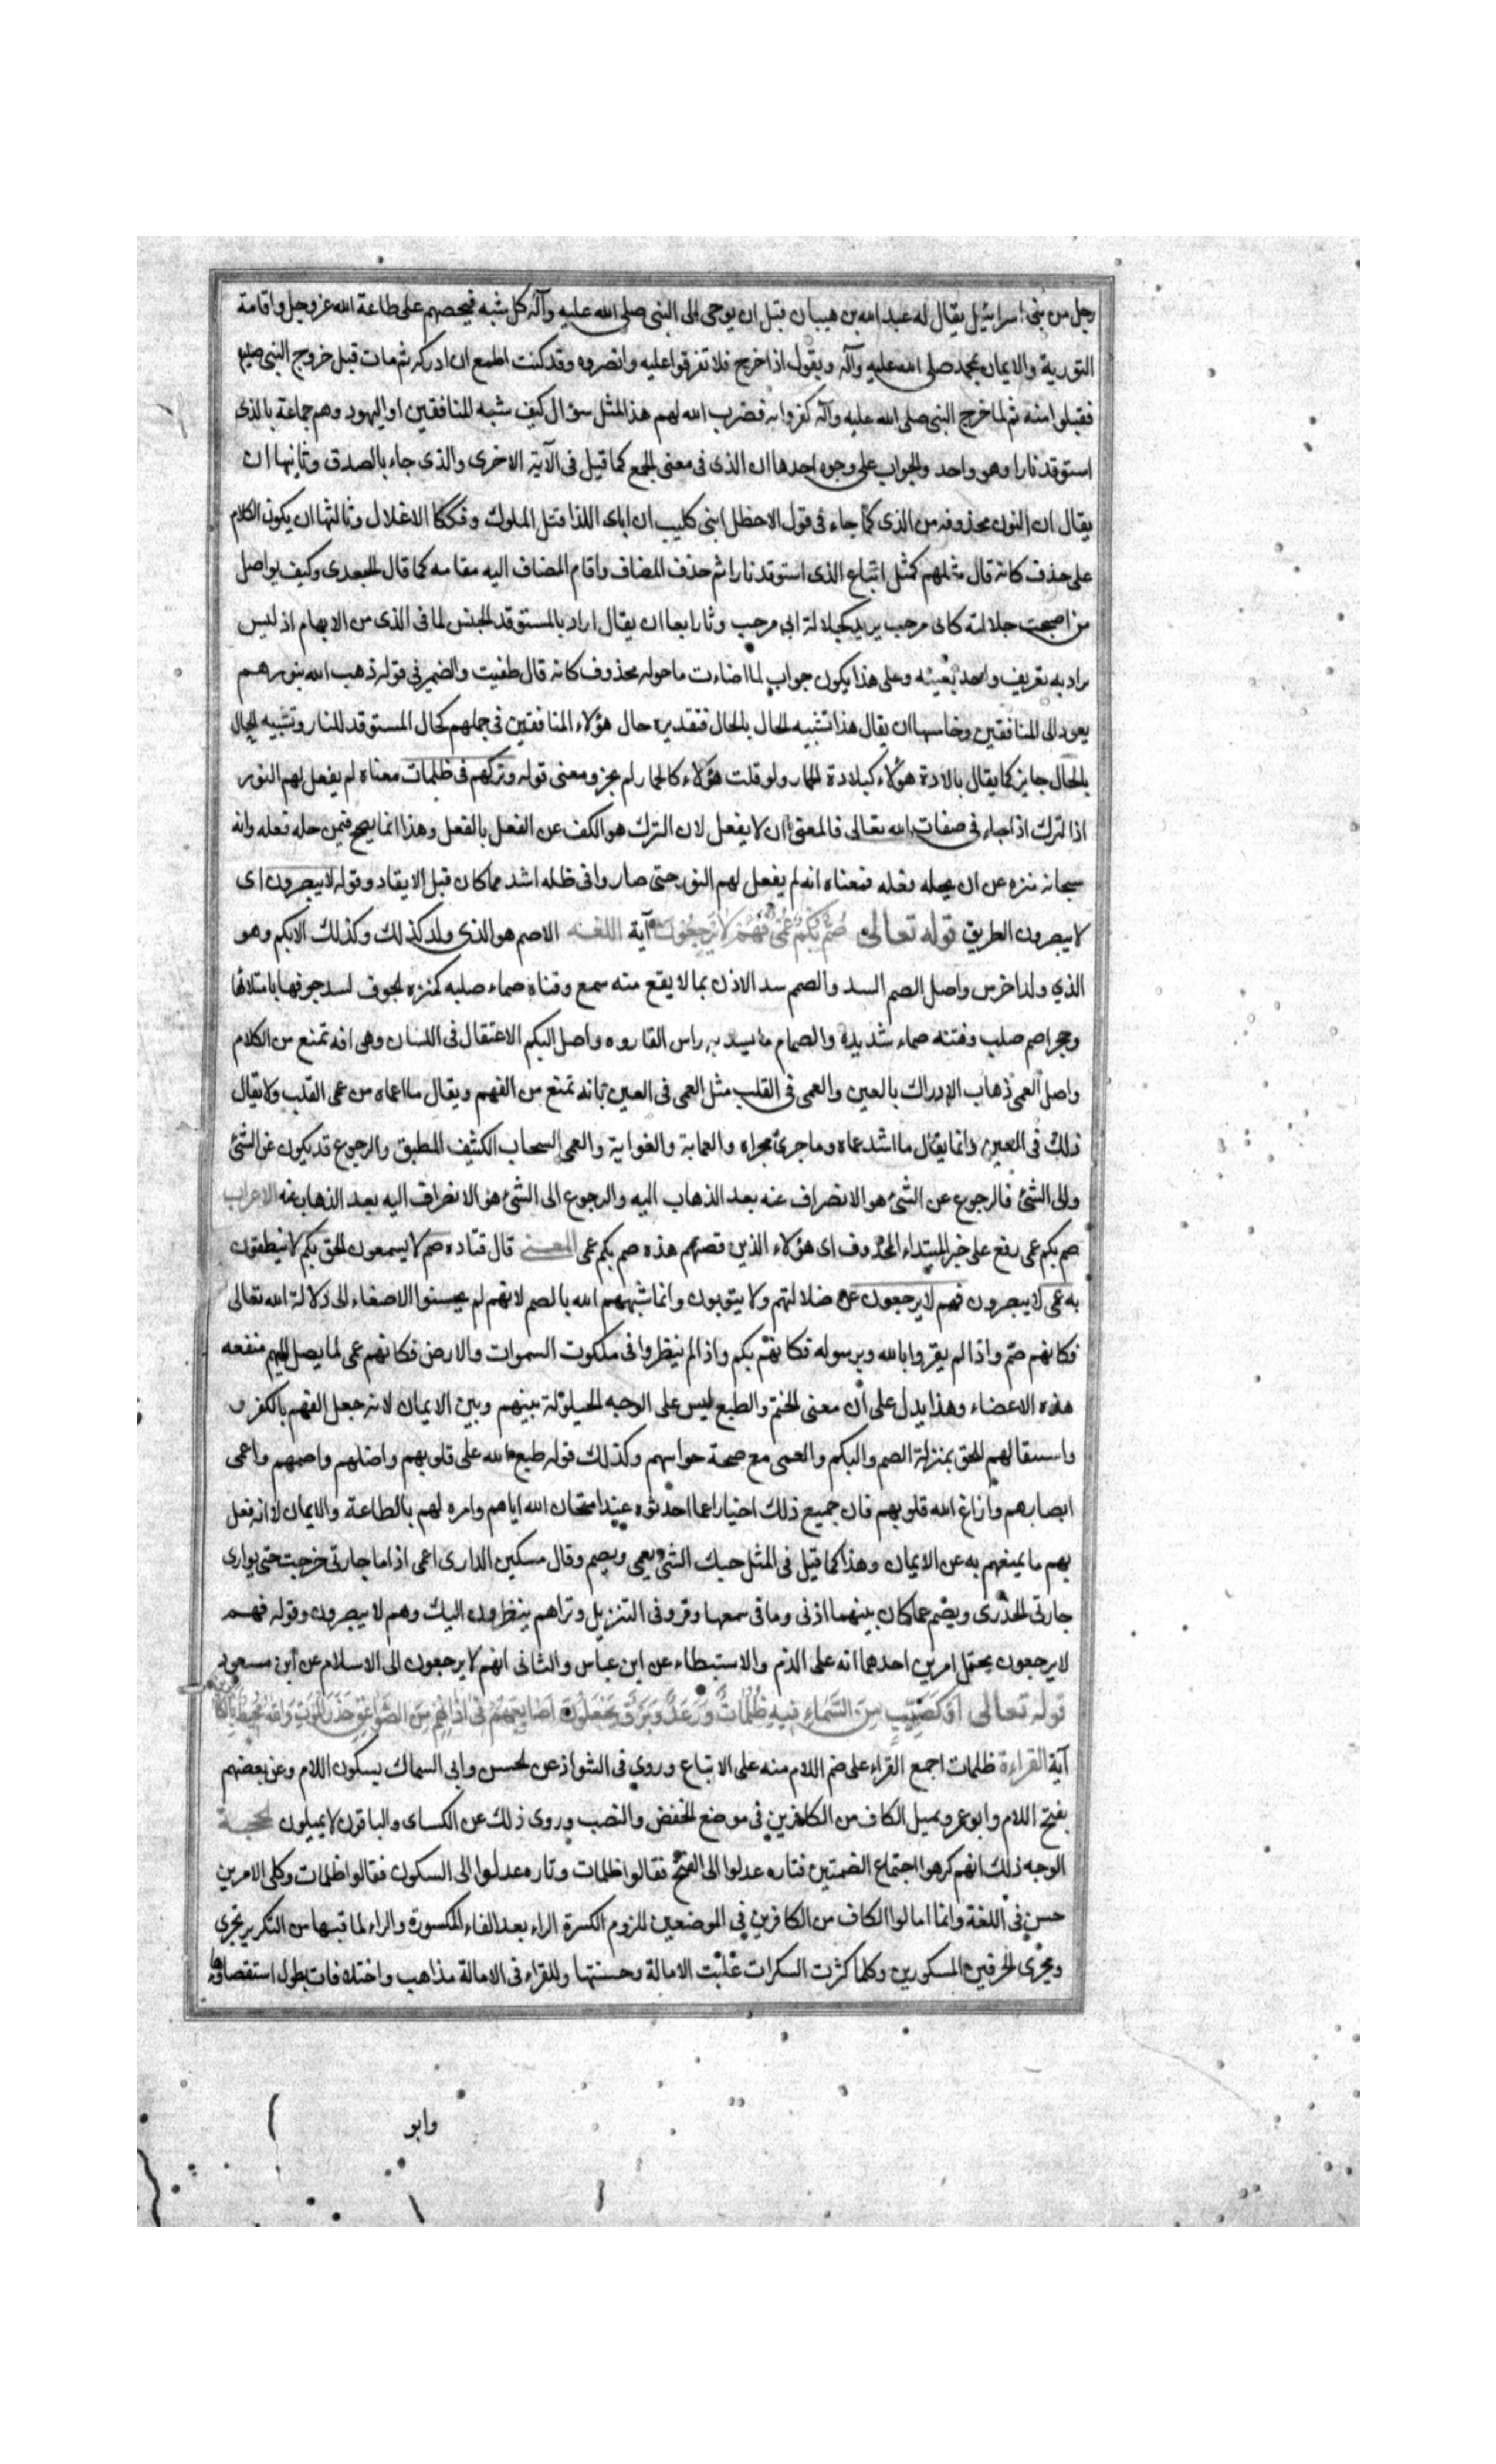 رجل من بنى اسرائيل يقال له عبد الله بن هيبان قبل ان يوحى الى النبى صلى الله عليه وآله كل شبه فيحصهم على طاعة الله عز وجل واقامة
التورية والايمان بمحمد صلى الله عليه وآله ويقول اذا خرج فلا تفرقوا عليه وانصروه وقد كنت اطمع ان ادركه ثم مات قبل خروج النبى صلعم
فقبلوا منه ثم لما خرج النبى صلى الله عليه وآله كفروا به فضرب الله لهم هذا المثل سؤال كيف شبه المنافقين او اليهود وهم جماعة بالذى
استوقد نارا وهو واحد والجواب على وجوه احدها ان الذى فى معنى الجمع كما قيل فى الآية الاخرى والذى جاء بالصدق وثانيها ان
يقال ان النون محذوفه من الذى كما جاء فى قول الاخطل ابنى كليب ان اباى اللذا قتل الملوك وفككا الاغلال وثالثها ان يكون الكلام
على حذف كانه قال مثلهم كمثل اتباع الذى استوقد نارا ثم حذف المضاف واقام المضاف اليه مقامه كما قال الجعدى وكيف يواصل
من اصبحت جلالته كابى مرحب يريد كجلالة ابى مرحب ورابعا ان يقال اراد بالمستوقد الجنس لما فى الذى من الابهام اذ ليس
يراد به تعريف واحد بعينه وعلى هذا يكون جواب لما اضاءت ما حوله محذوف كانه قال طفيت والضمير فى قوله ذهب الله بنورهم
يعود الى المنافقين وخامسها ان يقال هذا تشبيه الحال بالحال فتقديره حال هؤلاء المنافقين فى جهلهم كحال المستوقد للنار وتشبيه الحال
بالحال جايز كما يقال بلادة هؤلاء كبلادة الحمار ولو قلت هؤلاء كالحمار لم يجز ومعنى قوله وتركهم فى ظلمات معناه لم يفعل لهم النور
اذا لترك اذا جاء فى صفات الله تعالى فالمعنى ان لا يفعل لان الترك هو الكف عن الفعل بالفعل وهذا انما يصح فيمن حله فعله وانه
سبحانه منزه عن ان يحله فعله فمعناه انه لم يفعل لهم النور حتى صاروا فى ظلمه اشد مما كان قبل الايقاد وقوله لا يبصرون اى
لا يبصرون الطريق قوله تعالى صُمٌّ بُكْمٌ عُمْىٌ فَهُمْ لَا يَرْجِعُونَ آية اللغة الاصم هو الذى ولد كذلك وكذلك الابكم وهو
الذي ولد اخرس واصل الصم السد والصمم سد الاذن بما لا يقع منه سمع وقناة صماء صلبه مكتنزه الجوف لسد جوفها بامتلائها
وحجر اصم صلب وفتنه صماء شديدة والصمام ما يسد به راس القاروره واصل البكم الاعتقال فى اللسان وهى افه تمنع من الكلام
واصل العمى ذهاب الإدراك بالعين والعمى فى القلب مثل العمى فى العين بانه تمنع من الفهم ويقال ما اعماه من عمى القلب ولا يقال
ذلك فى العين وانما يقال ما اشد عماه وما جرى مجراه والعماية والغواية والعمى السحاب الكثيف المطبق والرجوع قد يكون عن الشئ
والى الشئ فالرجوع عن الشئ هو الانصراف عنه بعد الذهاب اليه والرجوع الى الشئ هو الانصراف اليه بعد الذهاب عنه الاعراب
صم بكم عمى رفع على خبر المبتداء المحذوف اى هؤلاء الذين قصتهم هذه صم بكم عمى المعنى قال قتاده صم لا يسمعون الحق بكم لا ينطقون
به عمى لا يبصرون فهم لا يرجعون عن ضلالتهم ولا يتوبون وانما شبههم الله بالصم لانهم لم يحسنوا الاصغاء الى دلالة الله تعالى
فكانهم صم واذا لم يقروا بالله وبرسوله فكانهم بكم واذا لم ينظروا فى ملكوت السموات والارض فكانهم عمى لما يصل اليهم منفعه
هذه الاعضاء وهذا يدل على ان معنى الختم والطبع ليس على الوجه الحيلولة بينهم وبين الايمان لانه جعل الفهم بالكفر و
واستثقالهم للحق بمنزلة الصم والبكم والعمى مع صحة حواسهم وكذلك قوله طبع الله على قلوبهم واضلهم واصمهم واعمى
ابصارهم وازاغ الله قلوبهم فان جميع ذلك اخبار عما احدثوه عند امتحان الله اياهم وامره لهم بالطاعة والايمان لا انه فعل
بهم ما يمنعهم به عن الايمان وهذا كما قيل فى المثل حبك الشئ يعمى ويصم وقال مسكين الدارى اعمى اذا ما جارتى خرجت حتى يوارى
جارتى الخدرى ويصم عما كان بينهما اذنى وما فى سمعها وقر وفى التنزيل وتراهم ينظرون اليك وهم لا يبصرون وقوله فهم
لا يرجعون يحتمل امرين احدهما انه على الذم والاستبطاء عن ابن عباس والثانى انهم لا يرجعون الى الاسلام عن ابن مسعود
قوله تعالى اَوْ كَصَيِّبٍ مِنَ السَّمَاءِ فِيهِ ظُلُمَاتٌ وَرَعْدٌ وَبَرْقٌ يَجْعَلُونَ اَصَابِعَهُمْ فِى آذَانِهِمْ مِنَ الصَّوَاعِقِ حَذَرَ الْمَوْتِ وَاللهُ مُحِيطٌ بِالْكَافِرِينَ
آية القراءة ظلمات اجمع القراء على ضم اللام منه على الاتباع وروى فى الشواذ عن الحسن وابى السماك بسكون اللام وعن بعضهم
بفتح اللام وابو عرو يميل الكاف من الكافرين فى موضع الخفض والنصب وروى ذلك عن الكساى والباقون لا يميلون الحجة
الوجه ذلك انهم كرهوا اجتماع الضمتين فتاره عدلوا الى الفتح فقالوا ظلمات وتاره عدلوا الى السكون فقالوا ظلمات وكلى الامرين
حسن فى اللغة وانما امالوا الكاف من الكافرين فى الموضعين للزوم الكسرة الراء بعد الفاء المكسورة والراء لما فيها من التكرير تجرى
ويجرى الحرفين المسكورين وكلما كثرت السكرات غلبت الامالة وحسنتها وللقراء فى الامالة مذاهب واختلافات يطول استقصاؤها
وابو